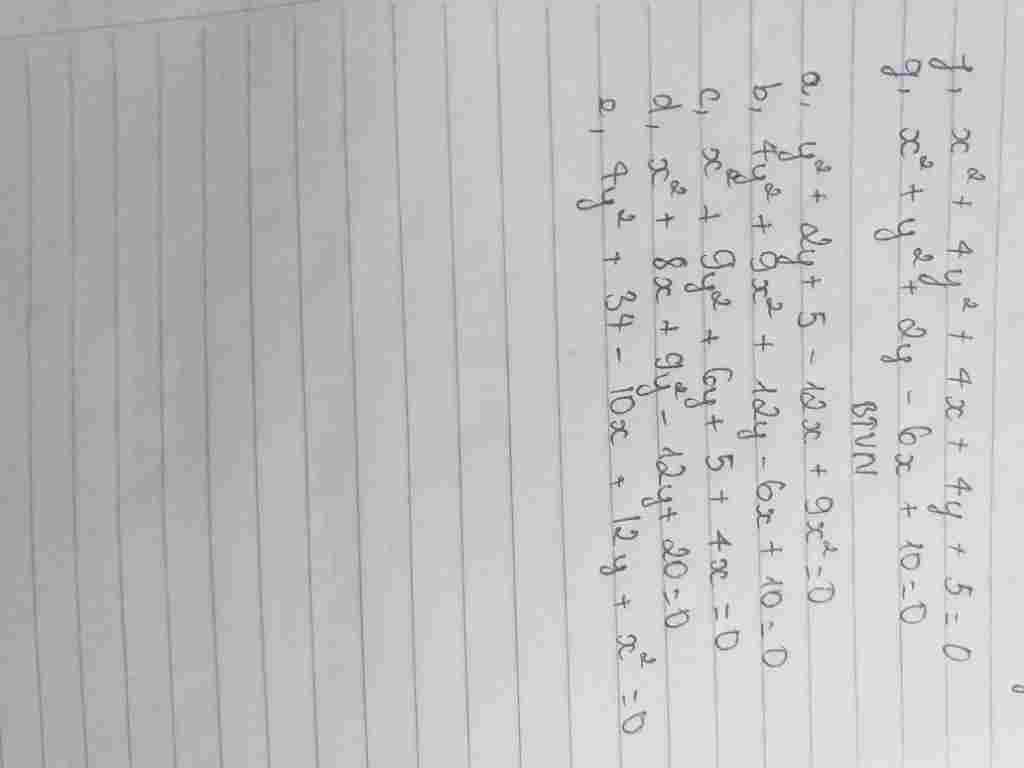 f, x² + 4y² + 4x + 4y + 5 = 0
g, x² + y² + 2y - 6x + 10 = 0
BTVN
a, y² + 2y + 5 - 12x + 9x² = 0
b, 4y² + 9x² + 12y - 6x + 10 = 0
c, x² + 9y² + 6y + 5 + 4x = 0
d, x² + 8x + 9y² - 12y + 20 = 0
e, 4y² + 34 - 10x + 12y + x² = 0